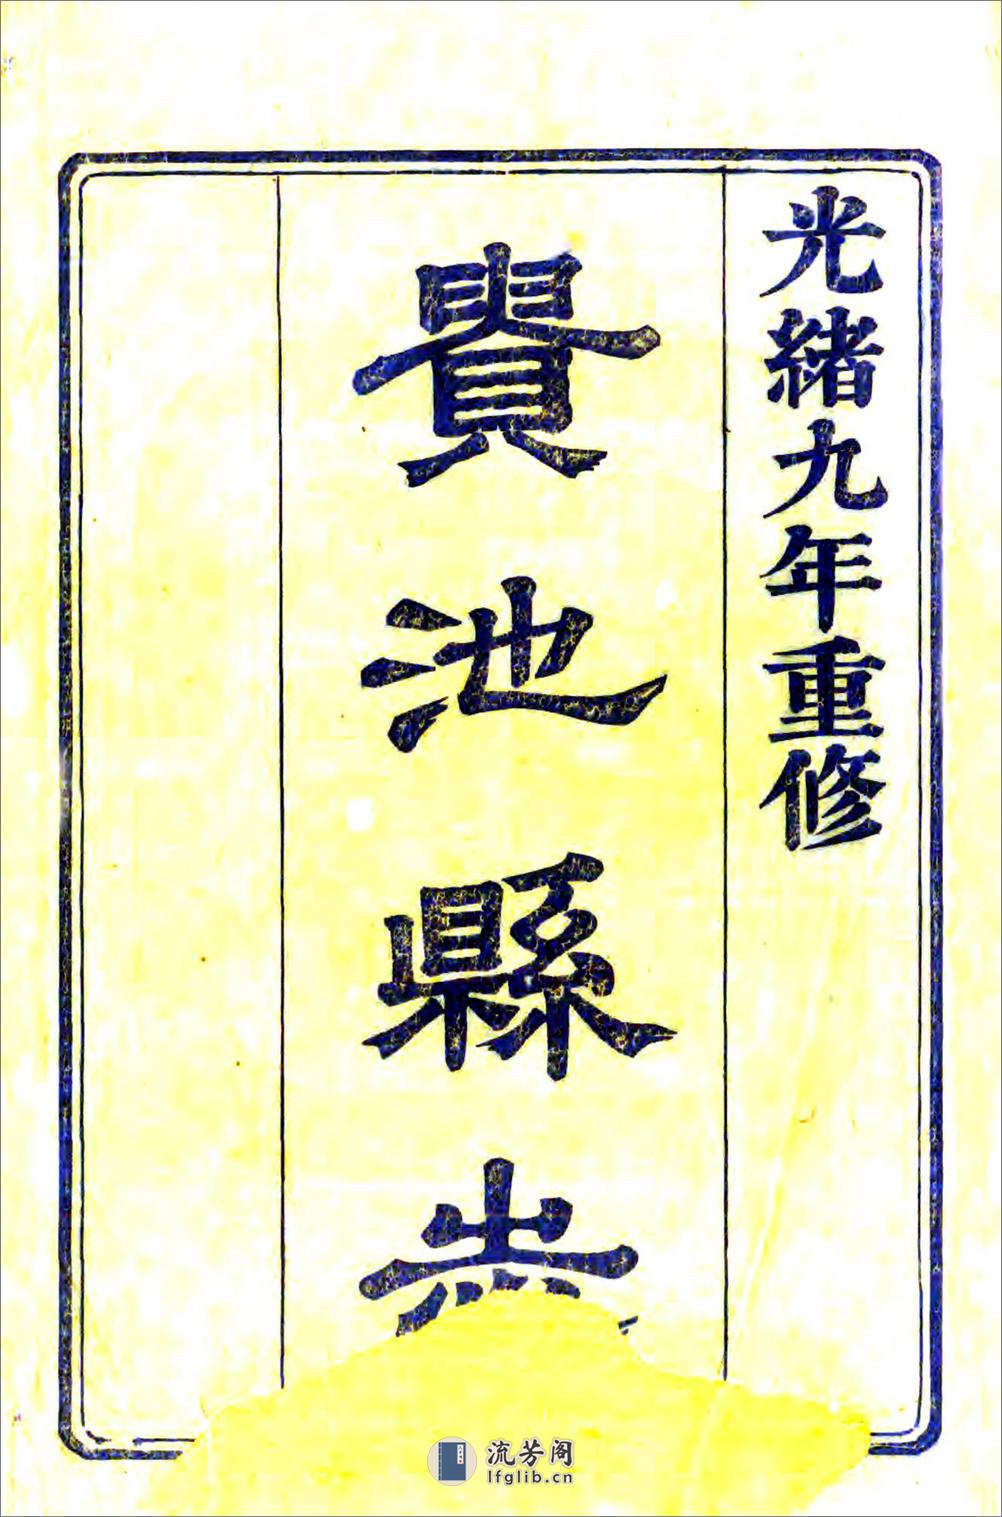 光緒九年重修
貴池縣志
流芳阁
lfglib.cn